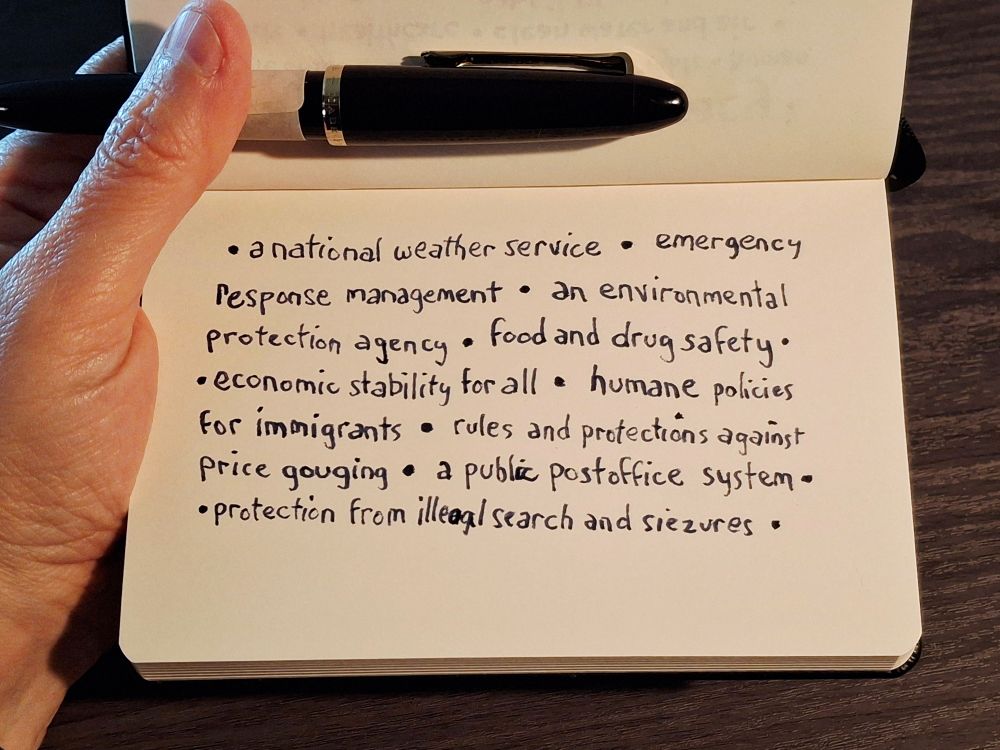 • a national weather service • emergency
response management • an environmental
protection agency • food and drug safety •
• economic stability for all • humane policies
for immigrants • rules and protections against
price gouging • a public postoffice system •
• protection from illeagl search and siezures •